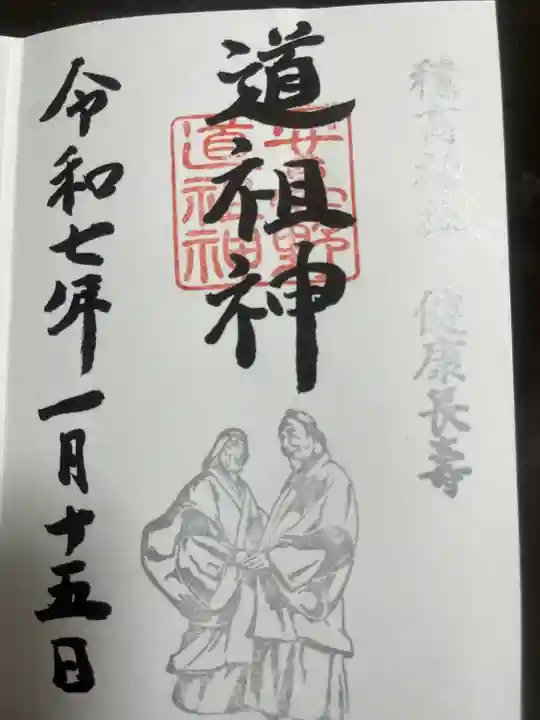 穂高神社 健康長寿
道祖神
安曇野
道祖神
令和七年一月十五日